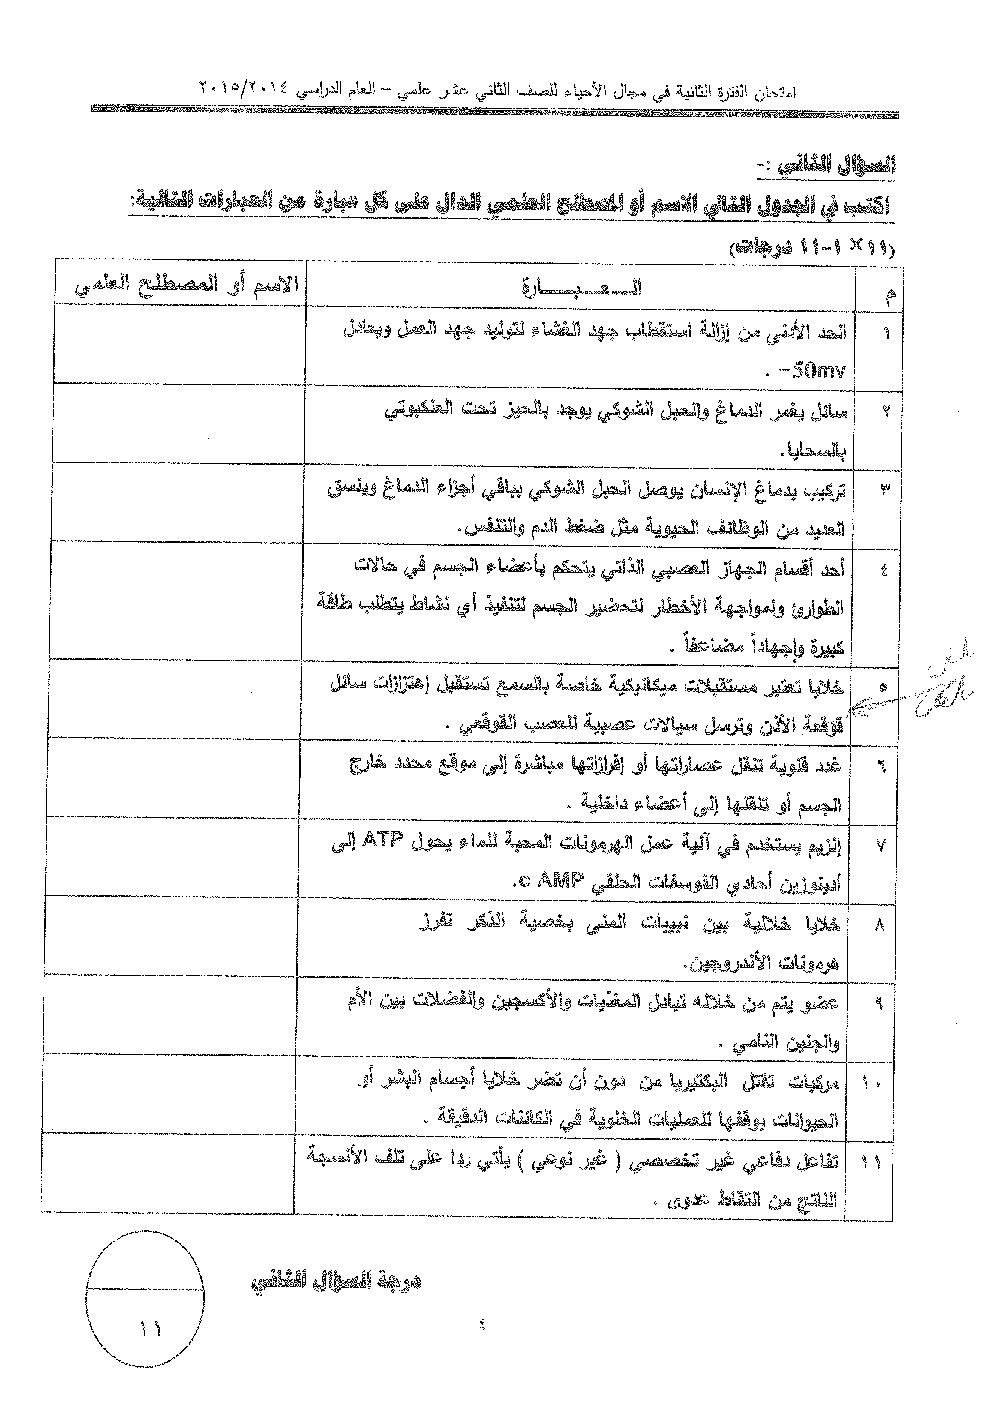 امتحان الفترة الثانية في مجال الأحياء للصف الثاني عشر علمي – العام الدراسي ٢٠١٥/٢٠١٤
السؤال الثاني :-
اكتب في الجدول التالي الاسم أو المصطلح العلمي الدال على كل عبارة من العبارات التالية:
(١١×١-١١ درجات)
م الـــعـــبـــارة الاسم أو المصطلح العلمي
١ الحد الأدنى من إزالة استقطاب جهد الغشاء لتوليد جهد العمل ويعادل
-50mv .
٢ سائل يغمر الدماغ والحبل الشوكي يوجد بالحيز تحت العنكبوتي
بالسحايا.
٣ تركيب بدماغ الإنسان يوصل الحبل الشوكي بباقي أجزاء الدماغ وينسق
العديد من الوظائف الحيوية مثل ضغط الدم والتنفس.
٤ أحد أقسام الجهاز العصبي الذاتي يتحكم بأعضاء الجسم في حالات
الطوارئ ولمواجهة الأخطار لتحضير الجسم لتنفيذ أي نشاط يتطلب طاقة
كبيرة وإجهاداً مضاعفاً .
٥ خلايا تعتبر مستقبلات ميكانيكية خاصة بالسمع تستقبل إهتزازات سائل
قوقعة الأذن وترسل سيالات عصبية للعصب القوقعي .
٦ غدد قنوية تنقل عصاراتها أو إفرازاتها مباشرة إلى موقع محدد خارج
الجسم أو تنقلها إلى أعضاء داخلية .
٧ إنزيم يستخدم في آلية عمل الهرمونات المحبة للماء يحول ATP إلى
أدينوزين أحادي الفوسفات الحلقي c AMP.
٨ خلايا خلالية بين نبيبات المنى بخصية الذكر تفرز
هرمونات الأندروجين.
٩ عضو يتم من خلاله تبادل المغذيات والأكسجين والفضلات بين الأم
والجنين النامي .
١٠ مركبات تقتل البكتيريا من دون أن تضر خلايا أجسام البشر أو
الحيوانات بوقفها للعمليات الخلوية في الكائنات الدقيقة .
١١ تفاعل دفاعي غير تخصصي ( غير نوعي ) يأتي ردا على تلف الأنسجة
الناتج من التقاط عدوى .
درجة السؤال الثاني
١١
٤